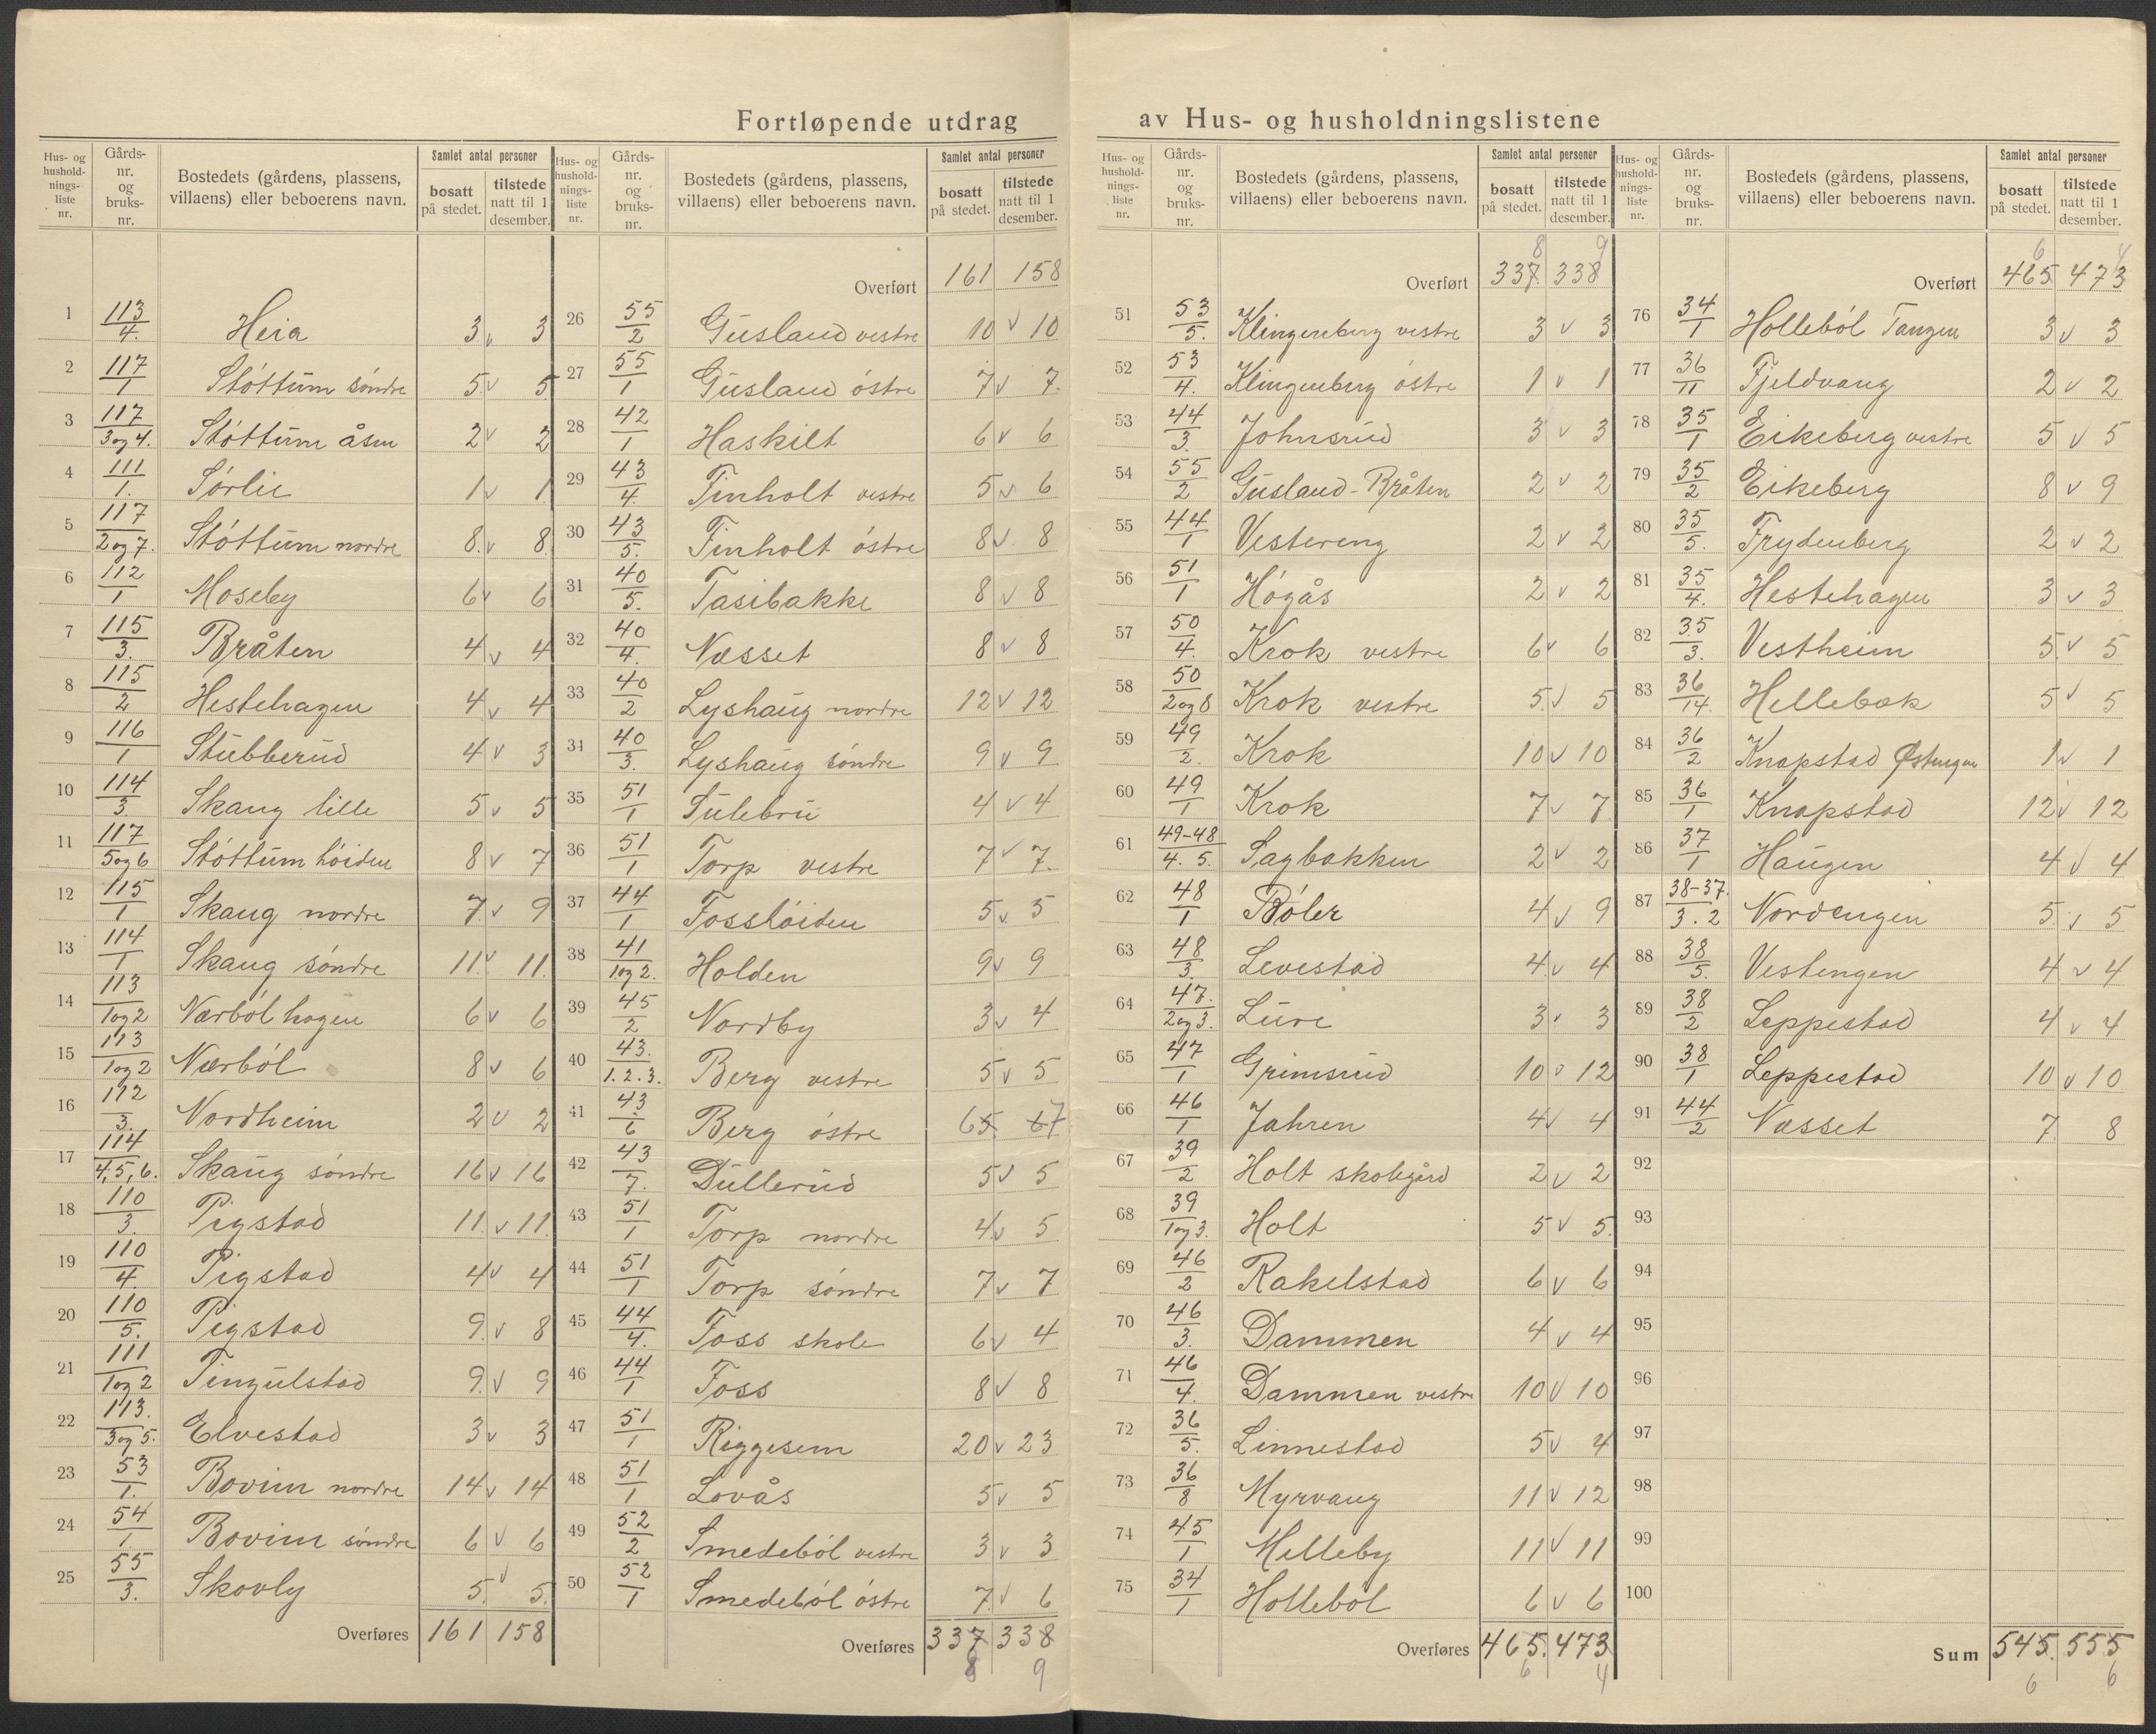 Fortløpende utdrag av Hus- og husholdningslistene
Hus- og husholdningsliste nr. | Gårds-nr. og bruks-nr. | Bostedets (gårdens, plassens, villaens) eller beboerens navn. | Samlet antal personer bosatt på stedet. | tilstede natt til 1 desember.
1 113/4. Heia 3 v 3
2 117/1 Støttum søndre 5 v 5
3 117/3 og 4. Støttum åsen 2 v 2
4 111/1. Sørlie 1 v 1
5 117/2 og 7. Støttum nordre 8 v 8
6 112/1 Moseby 6 v 6
7 115/3. Bråten 4 v 4
8 115/2 Hestehagen 4 v 4
9 116/1 Stubberud 4 v 3
10 114/3 Skaug lille 5 v 5
11 117/5 og 6 Støttum høiden 8 v 7
12 115/1 Skaug nordre 7 v 9
13 114/1 Skaug søndre 11 v 11
14 113/1 og 2 Nærbøl hagen 6 v 6
15 113/1 og 2 Nærbøl 8 v 6
16 112/3. Nordheim 2 v 2
17 114/4, 5, 6. Skaug søndre 16 v 16
18 110/3. Pigstad 11 v 11
19 110/4. Pigstad 4 v 4
20 110/5. Pigstad 9 v 8
21 111/1 og 2 Tingulstad 9 v 9
22 113./3 og 5. Elvestad 3 v 3
23 53/1. Bovim nordre 14 v 14
24 54/1. Bovim søndre 6 v 6
25 55/3. Skovly 5 v 5
Overføres 161 158
Hus- og husholdningsliste nr. | Gårds-nr. og bruks-nr. | Bostedets (gårdens, plassens, villaens) eller beboerens navn. | Samlet antal personer bosatt på stedet. | tilstede natt til 1 desember.
Overført 161 158
26 55/2 Gusland vestre 10 v 10
27 55/1 Gusland østre 7 v 7
28 42/1 Haskilt 6 v 6
29 43/4. Finholt vestre 5 v 6
30 43/5. Finholt østre 8 v 8
31 40/5. Tasibakke 8 v 8
32 40/4. Næsset 8 v 8
33 40/2 Lyshaug nordre 12 v 12
34 40/3. Lyshaug søndre 9 v 9
35 51/1 Sulebru 4 v 4
36 51/1 Torp vestre 7 v 7
37 44/1 Fosshøiden 5 v 5
38 41/1 og 2. Holden 9 v 9
39 45/2 Nordby 3 v 4
40 43./1. 2. 3. Berg vestre 5 v 5
41 43/6 Berg østre 6 5 6 7
42 43/7. Dullerud 5 v 5
43 51/1 Torp nordre 4 v 5
44 51/1 Torp søndre 7 v 7
45 44/4. Foss skole 6 v 4
46 44/1 Foss 8 v 8
47 51/1 Riggesem 20 v 23
48 51/1 Lovås 5 v 5
49 52/2 Smedebøl vestre 3 v 3
50 52/1 Smedebøl østre 7 v 6
Overføres 337 338
8 9
Hus- og husholdningsliste nr. | Gårds-nr. og bruks-nr. | Bostedets (gårdens, plassens, villaens) eller beboerens navn. | Samlet antal personer bosatt på stedet. | tilstede natt til 1 desember.
8 9
Overført 337 338
51 53/5. Klingenberg vestre 3 v 3
52 53/4. Klingenberg østre 1 v 1
53 44/3. Johnsrud 3 v 3
54 55/2 Gusland-Bråten 2 v 2
55 44/1 Vestereng 2 v 2
56 51/1 Høgås 2 v 2
57 50/4. Krok vestre 6 v 6
58 50/2 og 8 Krok vestre 5 v 5
59 49/2. Krok 10 v 10
60 49/1 Krok 7 v 7
61 49-48/4. 5. Sagbakken 2 v 2
62 48/1 Bøler 4 v 9
63 48/3. Levestad 4 v 4
64 47./2 og 3. Lure 3 v 3
65 47/1 Grimsrud 10 v 12
66 46/1 Jahren 4 v 4
67 39/2 Holt skolegård 2 v 2
68 39/1 og 3. Holt 5 v 5
69 46/2 Rakelstad 6 v 6
70 46/3. Dammen 4 v 4
71 46/4. Dammen vestre 10 v 10
72 36/5. Linnestad 5 v 4
73 36/8 Myrvang 11 v 12
74 45/1 Melleby 11 v 11
75 34/1 Hollebøl 6 v 6
Overføres 465. 473
6 4
Hus- og husholdningsliste nr. | Gårds-nr. og bruks-nr. | Bostedets (gårdens, plassens, villaens) eller beboerens navn. | Samlet antal personer bosatt på stedet. | tilstede natt til 1 desember.
6 4
Overført 465 473
76 34/1 Hollebøl Tangen 3 v 3
77 36/11 Fjeldvang 2 v 2
78 35/1 Eikeberg vestre 5 v 5
79 35/2 Eikeberg 8 v 9
80 35/5. Frydenberg 2 v 2
81 35/4. Hestehagen 3 v 3
82 35/3. Vestheim 5 v 5
83 36/14. Hellebæk 5 v 5
84 36/2 Knapstad Østengen 1 v 1
85 36/1 Knapstad 12 v 12
86 37/1 Haugen 4 v 4
87 38-37./3. 2 Nordengen 5 v 5
88 38/5. Vestengen 4 v 4
89 38/2 Leppestad 4 v 4
90 38/1 Leppestad 10 v 10
91 44/2 Næsset 7 8
92
93
94
95
96
97
98
99
100
Sum 545. 555
6 6